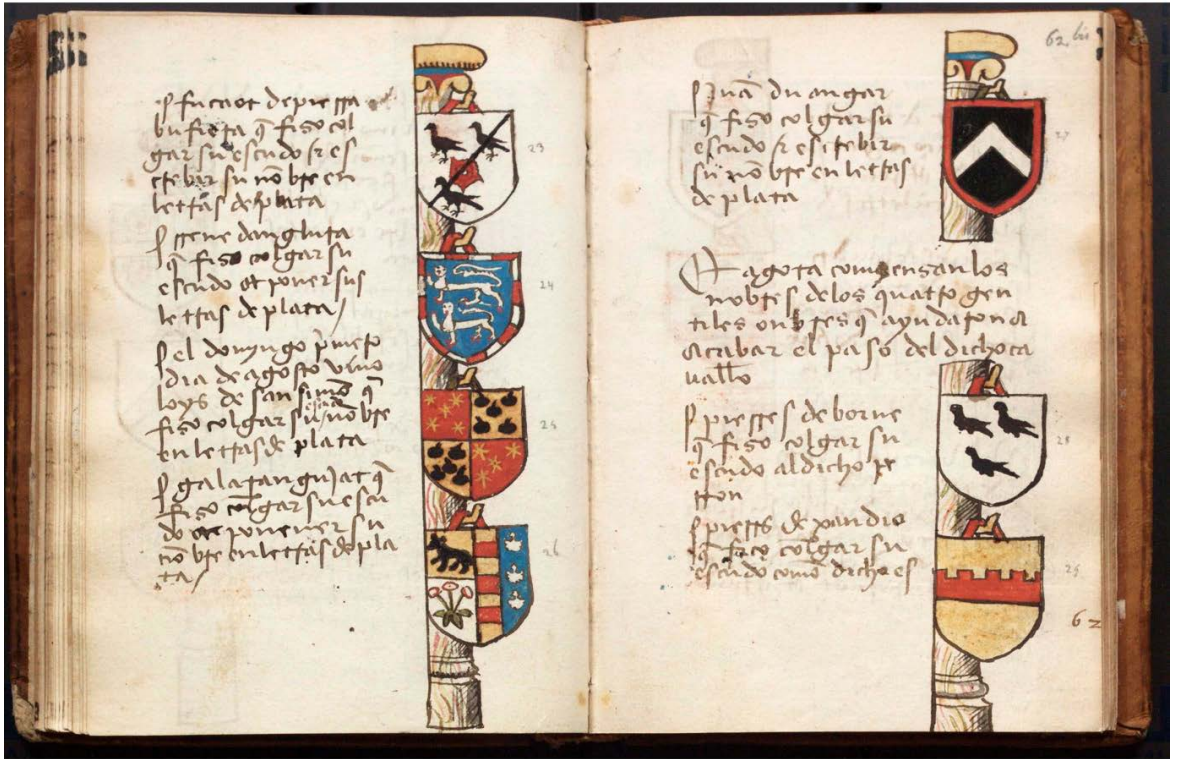 q̄ fiso col
gar su escudo & es
crebir su nōbre en
letras de plata
q̄ fiso colgar su
escudo et poner sus
letras de plata /
el domyngo p̄mero
dia de agosto vino
loys de san simō q̄
fiso colgar su escudo nōbre
en letras de plata
q̄
fiso colgar su escu
do ponener su
nōbre en letras de pla
ta /
23
24
25
26
62 bis
Juā du angar
q̄ fiso colgar su
escudo & escrebir
su nōbre en letras
de plata
agora comyensan los
nōbres de los quatro gen
tiles onbres q̄ ayudaron a
acabar el paso del dicho ca
vallō
pierres de borne
q̄ fiso colgar su
escudo al dicho pe
rron
pierrs de xandio
q̄ fiso colgar su
escudo comō dicho es
27
28
29
62